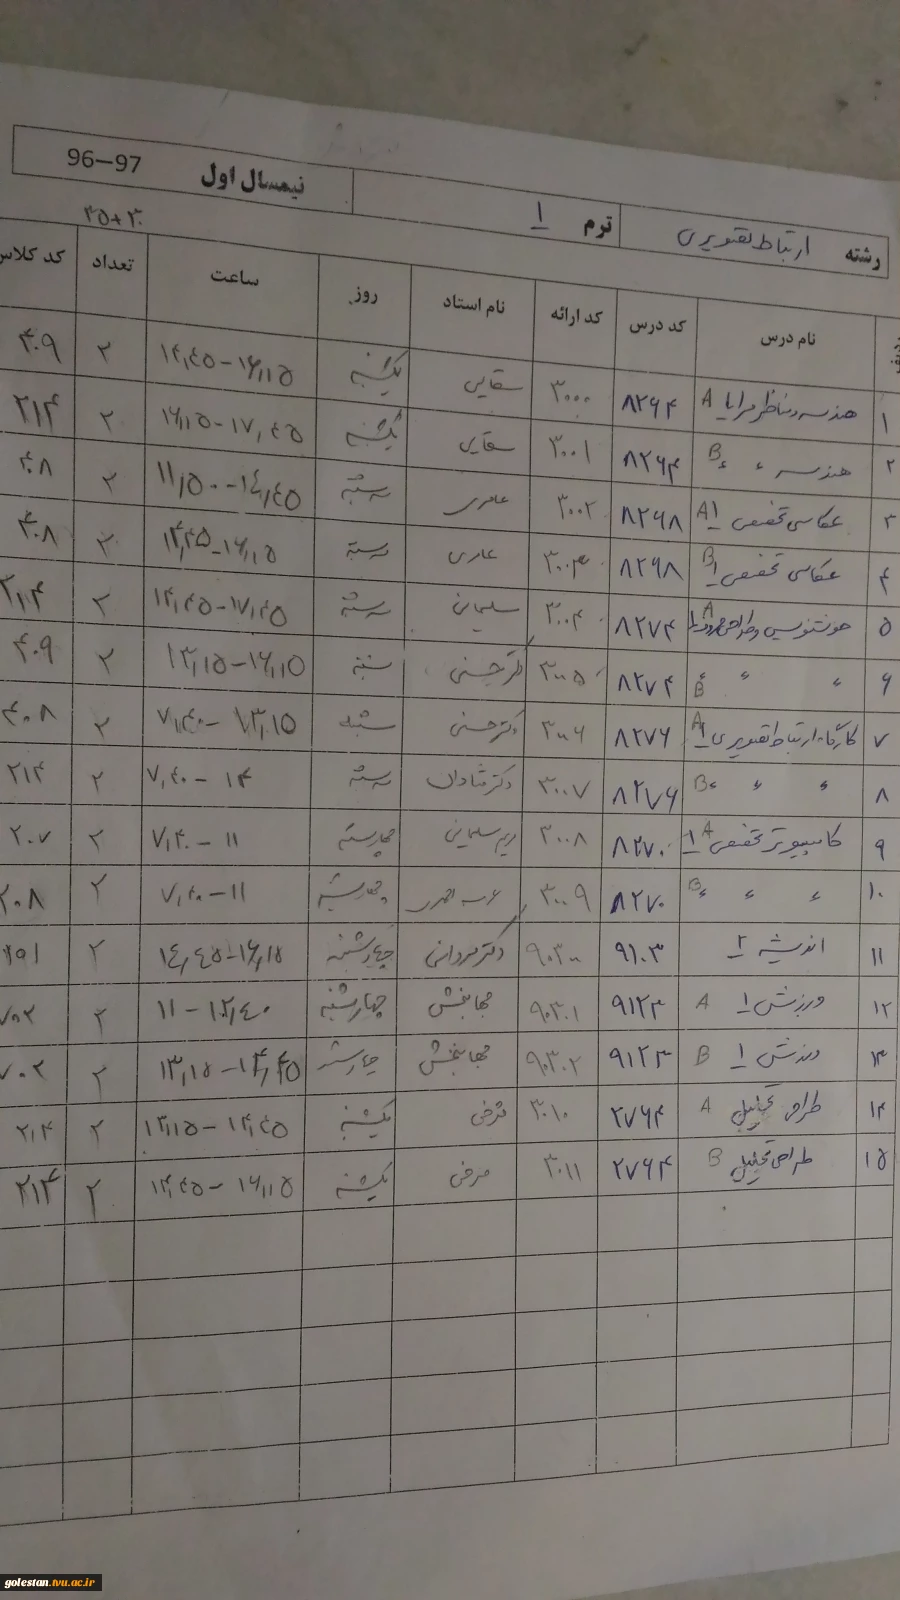 رشته ارتباط تصویری ترم ۱ نیمسال اول 96–97
۳۵+۳۰
ردیف نام درس کد درس کد ارائه نام استاد روز ساعت تعداد کد کلاس
۱ هندسه مناظر و مرایا A ۸۲۶۴ ۳۰۰۰ سقایی یکشنبه ۱۴,۴۵-۱۶,۱۵ ۲ ۴۰۹
۲ هندسه 〃 〃 B ۸۲۶۴ ۳۰۰۱ سقایی یکشنبه ۱۶,۱۵-۱۷,۴۵ ۲ ۲۱۴
۳ عکاسی تخصصی ۱ A ۸۲۶۸ ۳۰۰۲ عامری سه شنبه ۱۱,۵۰-۱۴,۴۵ ۲ ۴۰۸
۴ عکاسی تخصصی ۱ B ۸۲۶۸ ۳۰۰۳ عامری سه شنبه ۱۴,۴۵-۱۶,۱۵ ۳ ۴۰۸
۵ خوشنویسی و طراحی حروف ۱ A ۸۲۷۴ ۳۰۰۴ سلیمانی سه شنبه ۱۴,۴۵-۱۷,۴۵ ۲ ۲۱۴
۶ 〃 〃 〃 B ۸۲۷۴ ۳۰۰۵ دکتر حسنی شنبه ۱۳,۱۵-۱۶,۱۵ ۲ ۴۰۹
۷ کارگاه ارتباط تصویری ۱ A ۸۲۷۶ ۳۰۰۶ دکتر حسنی شنبه ۷,۴۰-۱۳,۱۵ ۲ ۴۰۸
۸ 〃 〃 〃 B ۸۲۷۶ ۳۰۰۷ دکتر شادلو سه شنبه ۷,۴۰-۱۴ ۲ ۲۱۴
۹ کامپیوتر تخصصی ۱ A ۸۲۷۰ ۳۰۰۸ سلیمانی چهارشنبه ۷,۴۰-۱۱ ۲ ۲۰۷
۱۰ 〃 〃 〃 B ۸۲۷۰ ۳۰۰۹ چهارشنبه ۷,۴۰-۱۱ ۲ ۲۰۸
۱۱ اندیشه ۲ ۹۱۰۳ ۹۰۳۰۰ دکتر مردانی چهارشنبه ۱۴,۴۵-۱۶,۱۵ ۲ ۲۵۱
۱۲ ورزش ۱ A ۹۱۲۳ ۹۰۳۰۱ جهانبخش چهارشنبه ۱۱-۱۲,۴۰ ۲ ۷۰۲
۱۳ ورزش ۱ B ۹۱۲۳ ۹۰۳۰۲ جهانبخش چهارشنبه ۱۳,۱۵-۱۴,۴۵ ۲ ۷۰۲
۱۴ طراحی تحلیلی A ۲۷۶۴ ۳۰۱۰ فرضی یکشنبه ۱۳,۱۵-۱۴,۴۵ ۲ ۲۱۴
۱۵ طراحی تحلیلی B ۲۷۶۴ ۳۰۱۱ فرضی یکشنبه ۱۴,۴۵-۱۶,۱۵ ۲ ۲۱۴
golestan.tvu.ac.ir